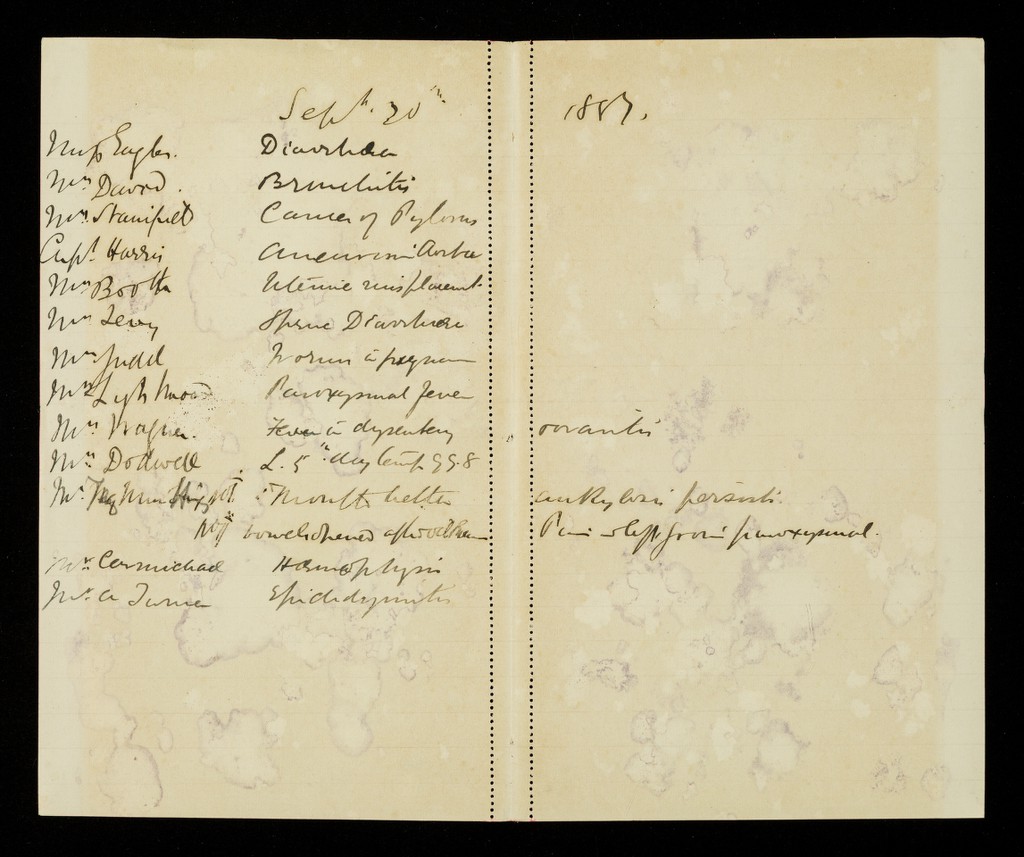 Sept. 20th 1887.
Miss Eagles. Diarrhoea
Mrs David. Bronchitis
Mrs Stanifield Cancer of Pylorus
Capt Harris Aneurism Aorta
Mrs Booth Uterine misplacement
Mrs Levy Sprue Diarrhoea
Mrs Judd Worms
Mrs Lightwood Paroxysmal fever
Mrs Wagner. Fever c̄ dysentery ovaritis
Mrs Dodwell L. 5th day temp 99.8
Mr Mouth better ankylosis persists.
bowels opened after Pain in left groin paroxysmal.
Mr Carmichael Haemoptysis
Mr A Turner Epididymitis